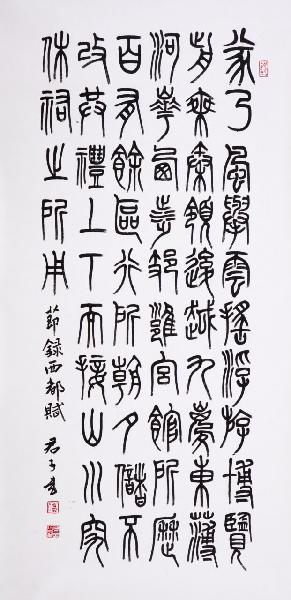 遂乃風舉雲搖浮游博覽
前乘秦嶺後越九嵕東薄
河華西涉岐雍宮館所歷
百有餘區行所朝夕儲不
改供禮上下而接山川究
休祐之所用
節錄西都賦